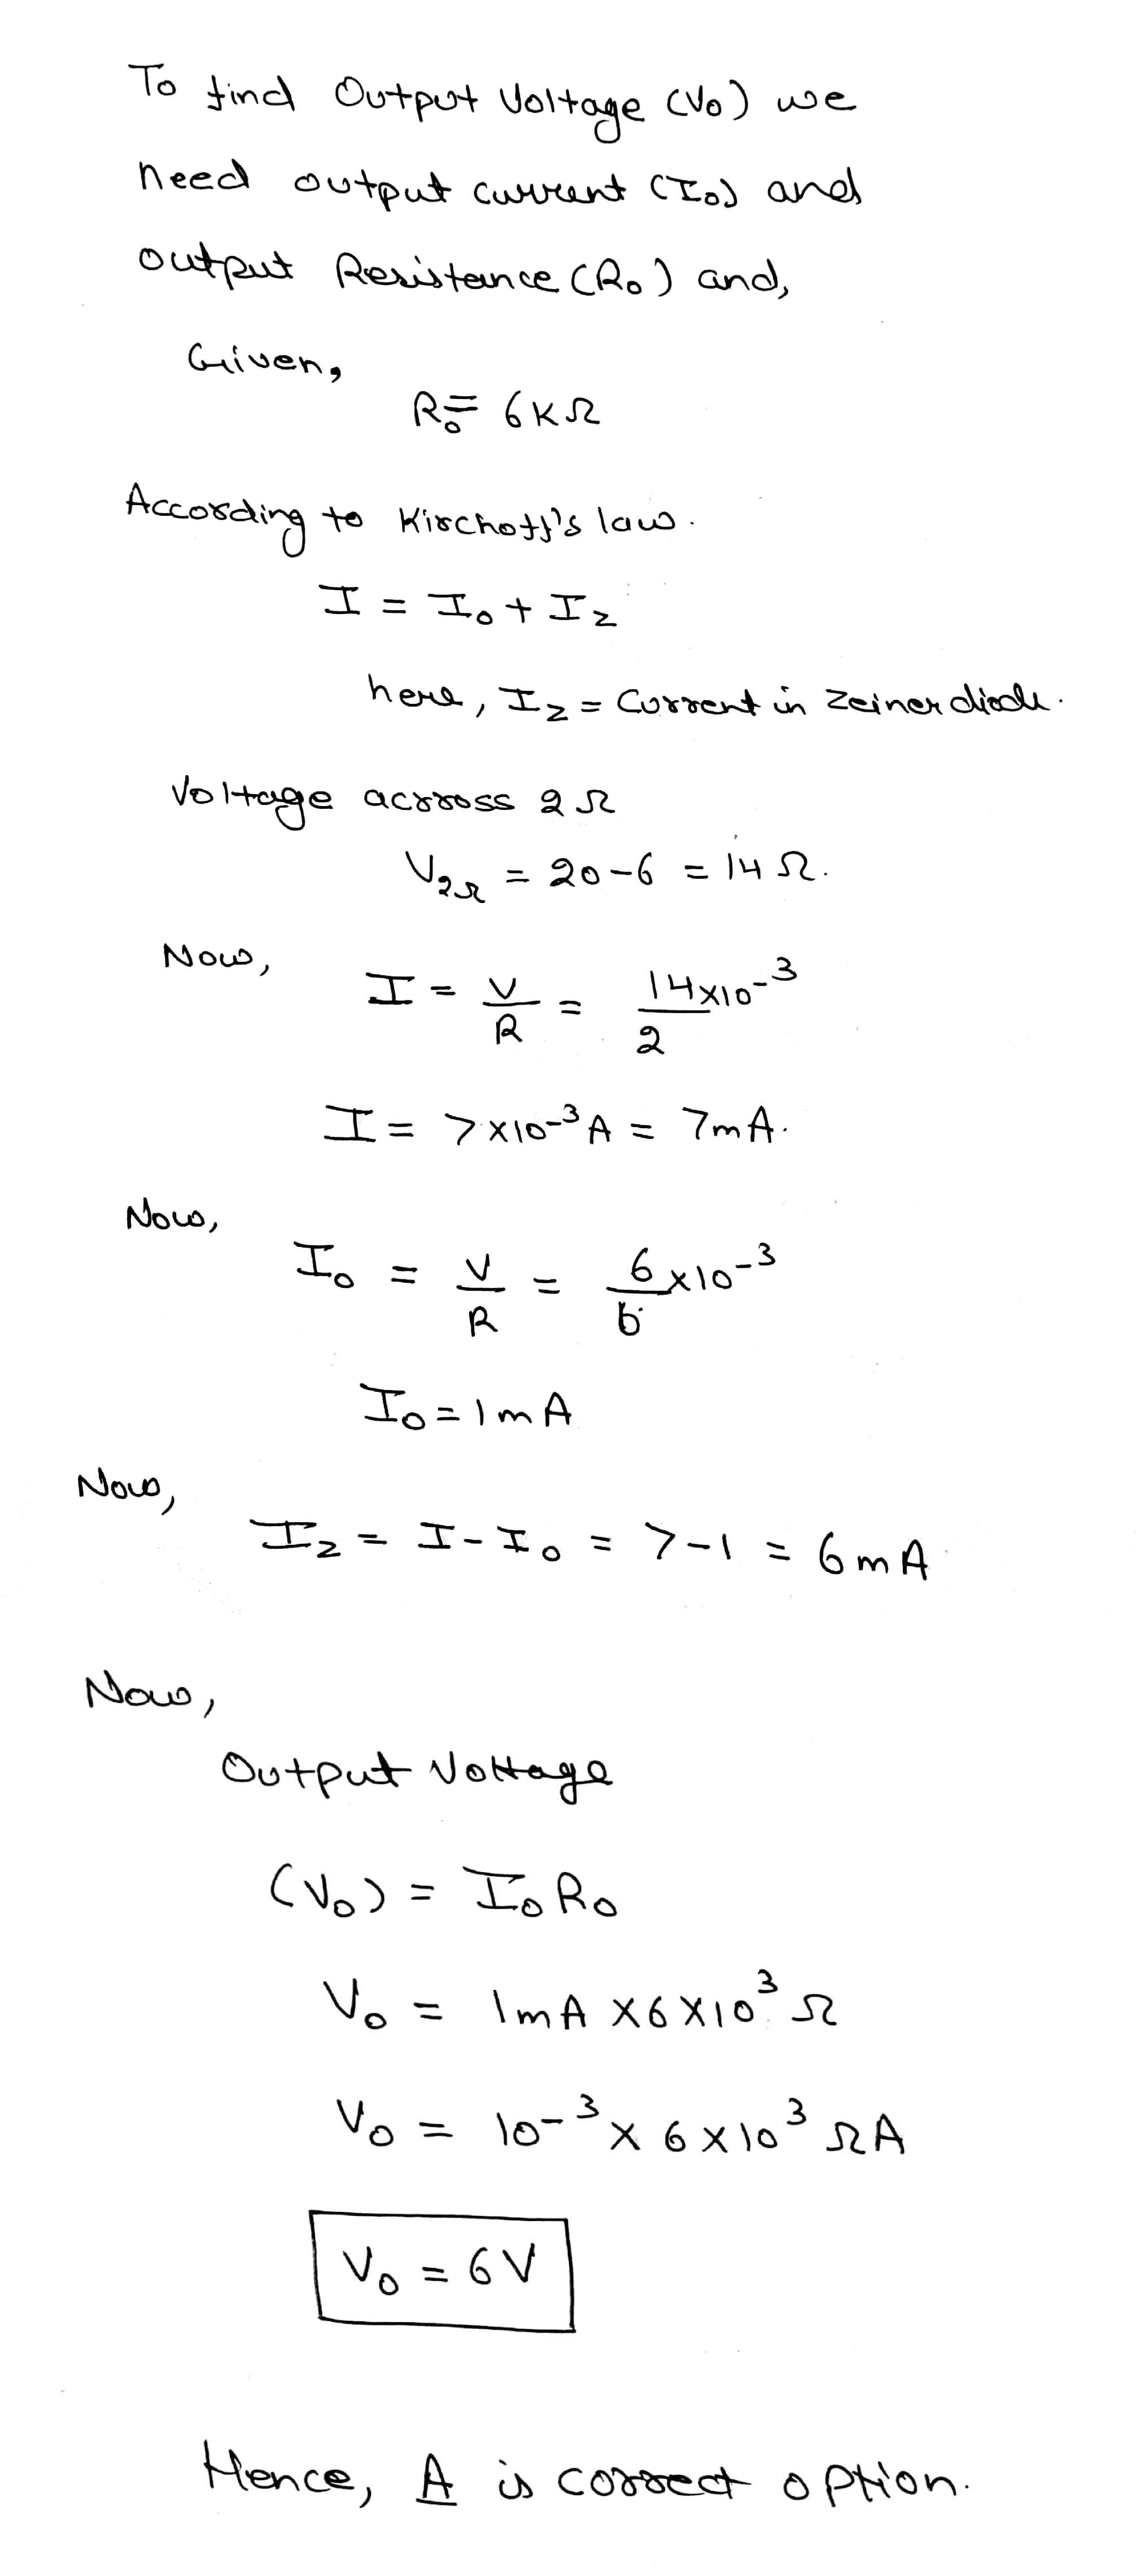 To find Output Voltage (Vo) we
need output current (Io) and
output Resistance (Ro) and,
Given,
Ro = 6KΩ
According to Kirchoff's law.
I = Io + Iz
here, Iz = Current in Zeiner diode.
Voltage acrross 2Ω
V2Ω = 20-6 = 14Ω.
Now,
I = V/R = 14×10^-3/2
I = 7×10^-3 A = 7mA.
Now,
Io = V/R = 6×10^-3/6
Io = 1mA
Now,
Iz = I - Io = 7-1 = 6mA
Now,
Output Voltage
(Vo) = IoRo
Vo = 1mA ×6×10^3 Ω
Vo = 10^-3 × 6×10^3 ΩA
Vo = 6V
Hence, A is correct option.